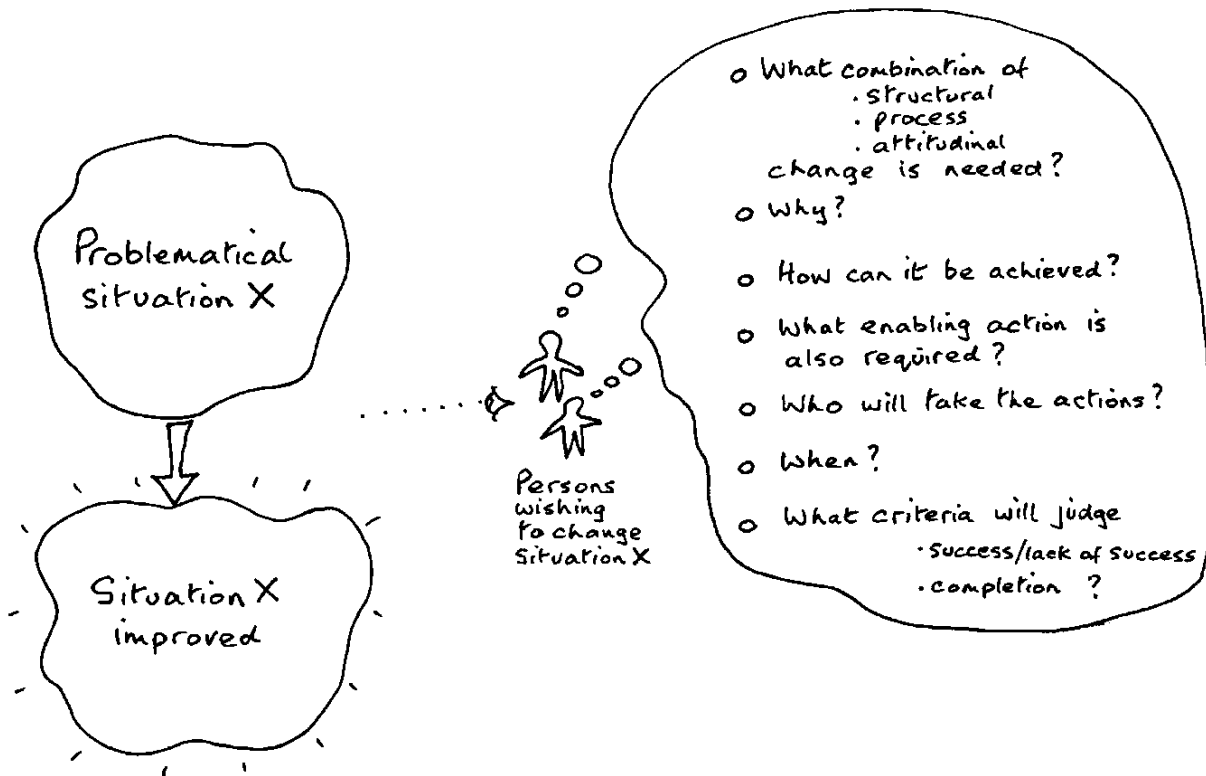 Problematical
situation X
Situation X
improved
Persons
wishing
to change
Situation X
What combination of
. structural
. process
. attitudinal
change is needed?
Why?
How can it be achieved?
What enabling action is
also required?
Who will take the actions?
When?
What criteria will judge
. success/lack of success
. completion ?